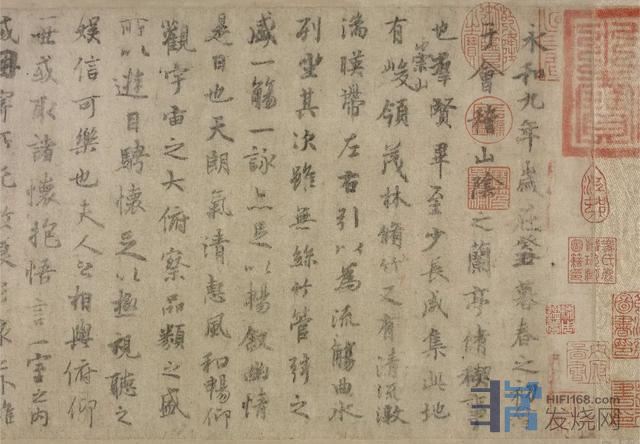 永和九年歲在癸丑暮春之初會
于會稽山陰之蘭亭脩稧事
也羣賢畢至少長咸集此地
有崇山峻領茂林脩竹又有清流激
湍暎帶左右引以為流觴曲水
列坐其次雖無絲竹管弦之
盛一觴一詠亦足以暢敘幽情
是日也天朗氣清惠風和暢仰
觀宇宙之大俯察品類之盛
所以遊目騁懷足以極視聽之
娛信可樂也夫人之相與俯仰
一世或取諸懷抱悟言一室之內
HIFI168.com
发烧网